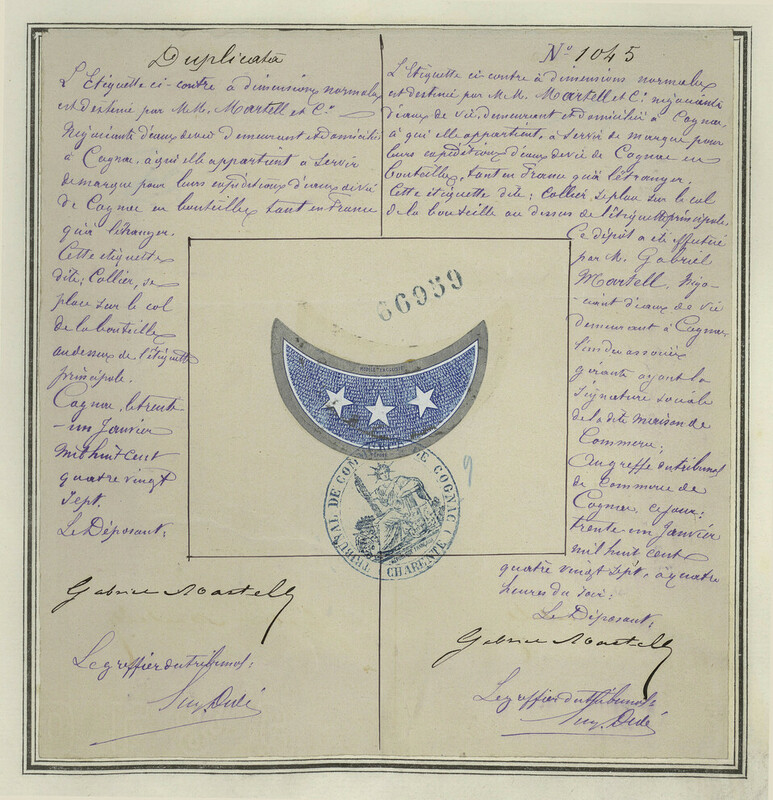 Duplicata
L'Etiquette ci-contre à dimensions normales
est destiné par M.M. Martell et Cie
Négociants d'eaux de vie demeurant et domiciliés
à Cognac, à qui elle appartient à servir
de marque pour leurs expéditions d'eaux de vie
de Cognac en bouteilles tant en France
qu'à l'étranger.
Cette étiquette
dite; Collier, se
place sur le col
de la bouteille
au dessus de l'étiquette
principale.
Cognac, le trente
-un Janvier
mil huit cent
quatre vingt
sept.
Le Déposant:
Gabriel Martell
Le greffier du tribunal:
N° 1045
L'Etiquette ci-contre à dimensions normales
est destiné par M.M. Martell et Cie négociants
d'eaux de vie, demeurant et domiciliés à Cognac,
à qui elle appartient, à servir de marque pour
leurs expéditions d'eaux de vie de Cognac en
bouteilles, tant en France qu'à l'étranger.
Cette étiquette dite; Collier, se place sur le col
de la bouteille au dessus de l'étiquette principale.
Ce dépôt a été effectué
par M. Gabriel
Martell, Négo-
ciant d'eaux de vie
demeurant à Cognac
l'un des associés
gérants ayant la
signature sociale
de la dite maison de
Commerce;
Au greffe du tribunal
de Commerce de
Cognac, ce jour:
trente un Janvier
mil huit cent
quatre vingt sept, à quatre
heures du soir:
Le Déposant:
Gabriel Martell
Le greffier du tribunal:
66959
TRIBUNAL DE COMMERCE DE COGNAC
CHARENTE
9